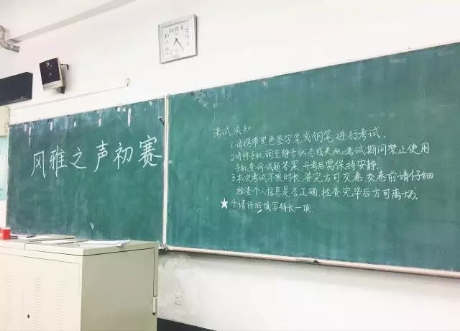 风雅之声初赛
考试须知
1.请携带黑色签字笔或钢笔进行考试.
2.请将手机调至静音状态或关机,考试期间禁止使用
手机查阅试题答案,开考后需保持安静.
3.本次考试不限时长,答完方可交卷,交卷前请仔细
检查个人信息是否正确,检查完毕后方可离场.
★4.请仔细填写特长一项.